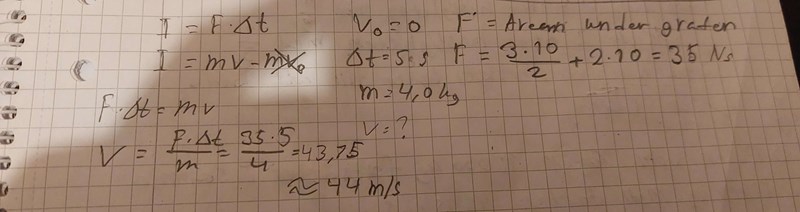 I = F·Δt
I = mv - mv₀
F·Δt = mv
V = F·Δt/m = 35·5/4 = 43,75
≈ 44 m/s
V₀ = 0
Δt = 5 s
m = 4,0 kg
V = ?
F = Arean under grafen
F = 3·10/2 + 2·10 = 35 Ns